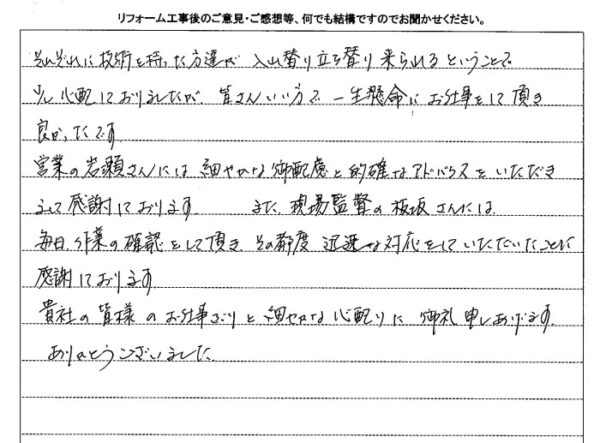 リフォーム工事後のご意見・ご感想等、何でも結構ですのでお聞かせください。
それぞれに技術を持った方達が 入れ替り立ち替り来られるということで
少し心配しておりましたが、皆さんいい方で一生懸命にお仕事をして頂き
良かったです
営業の岩瀬さんには細やかな御配慮と的確なアドバイスをいただき
まして感謝しております また、現場監督の板坂さんには、
毎日作業の確認をして頂き、その都度 迅速な対応をしていただいたことに
感謝しております
貴社の皆様のお仕事ぶりと細やかな心配りに御礼申しあげます。
ありがとうございました。